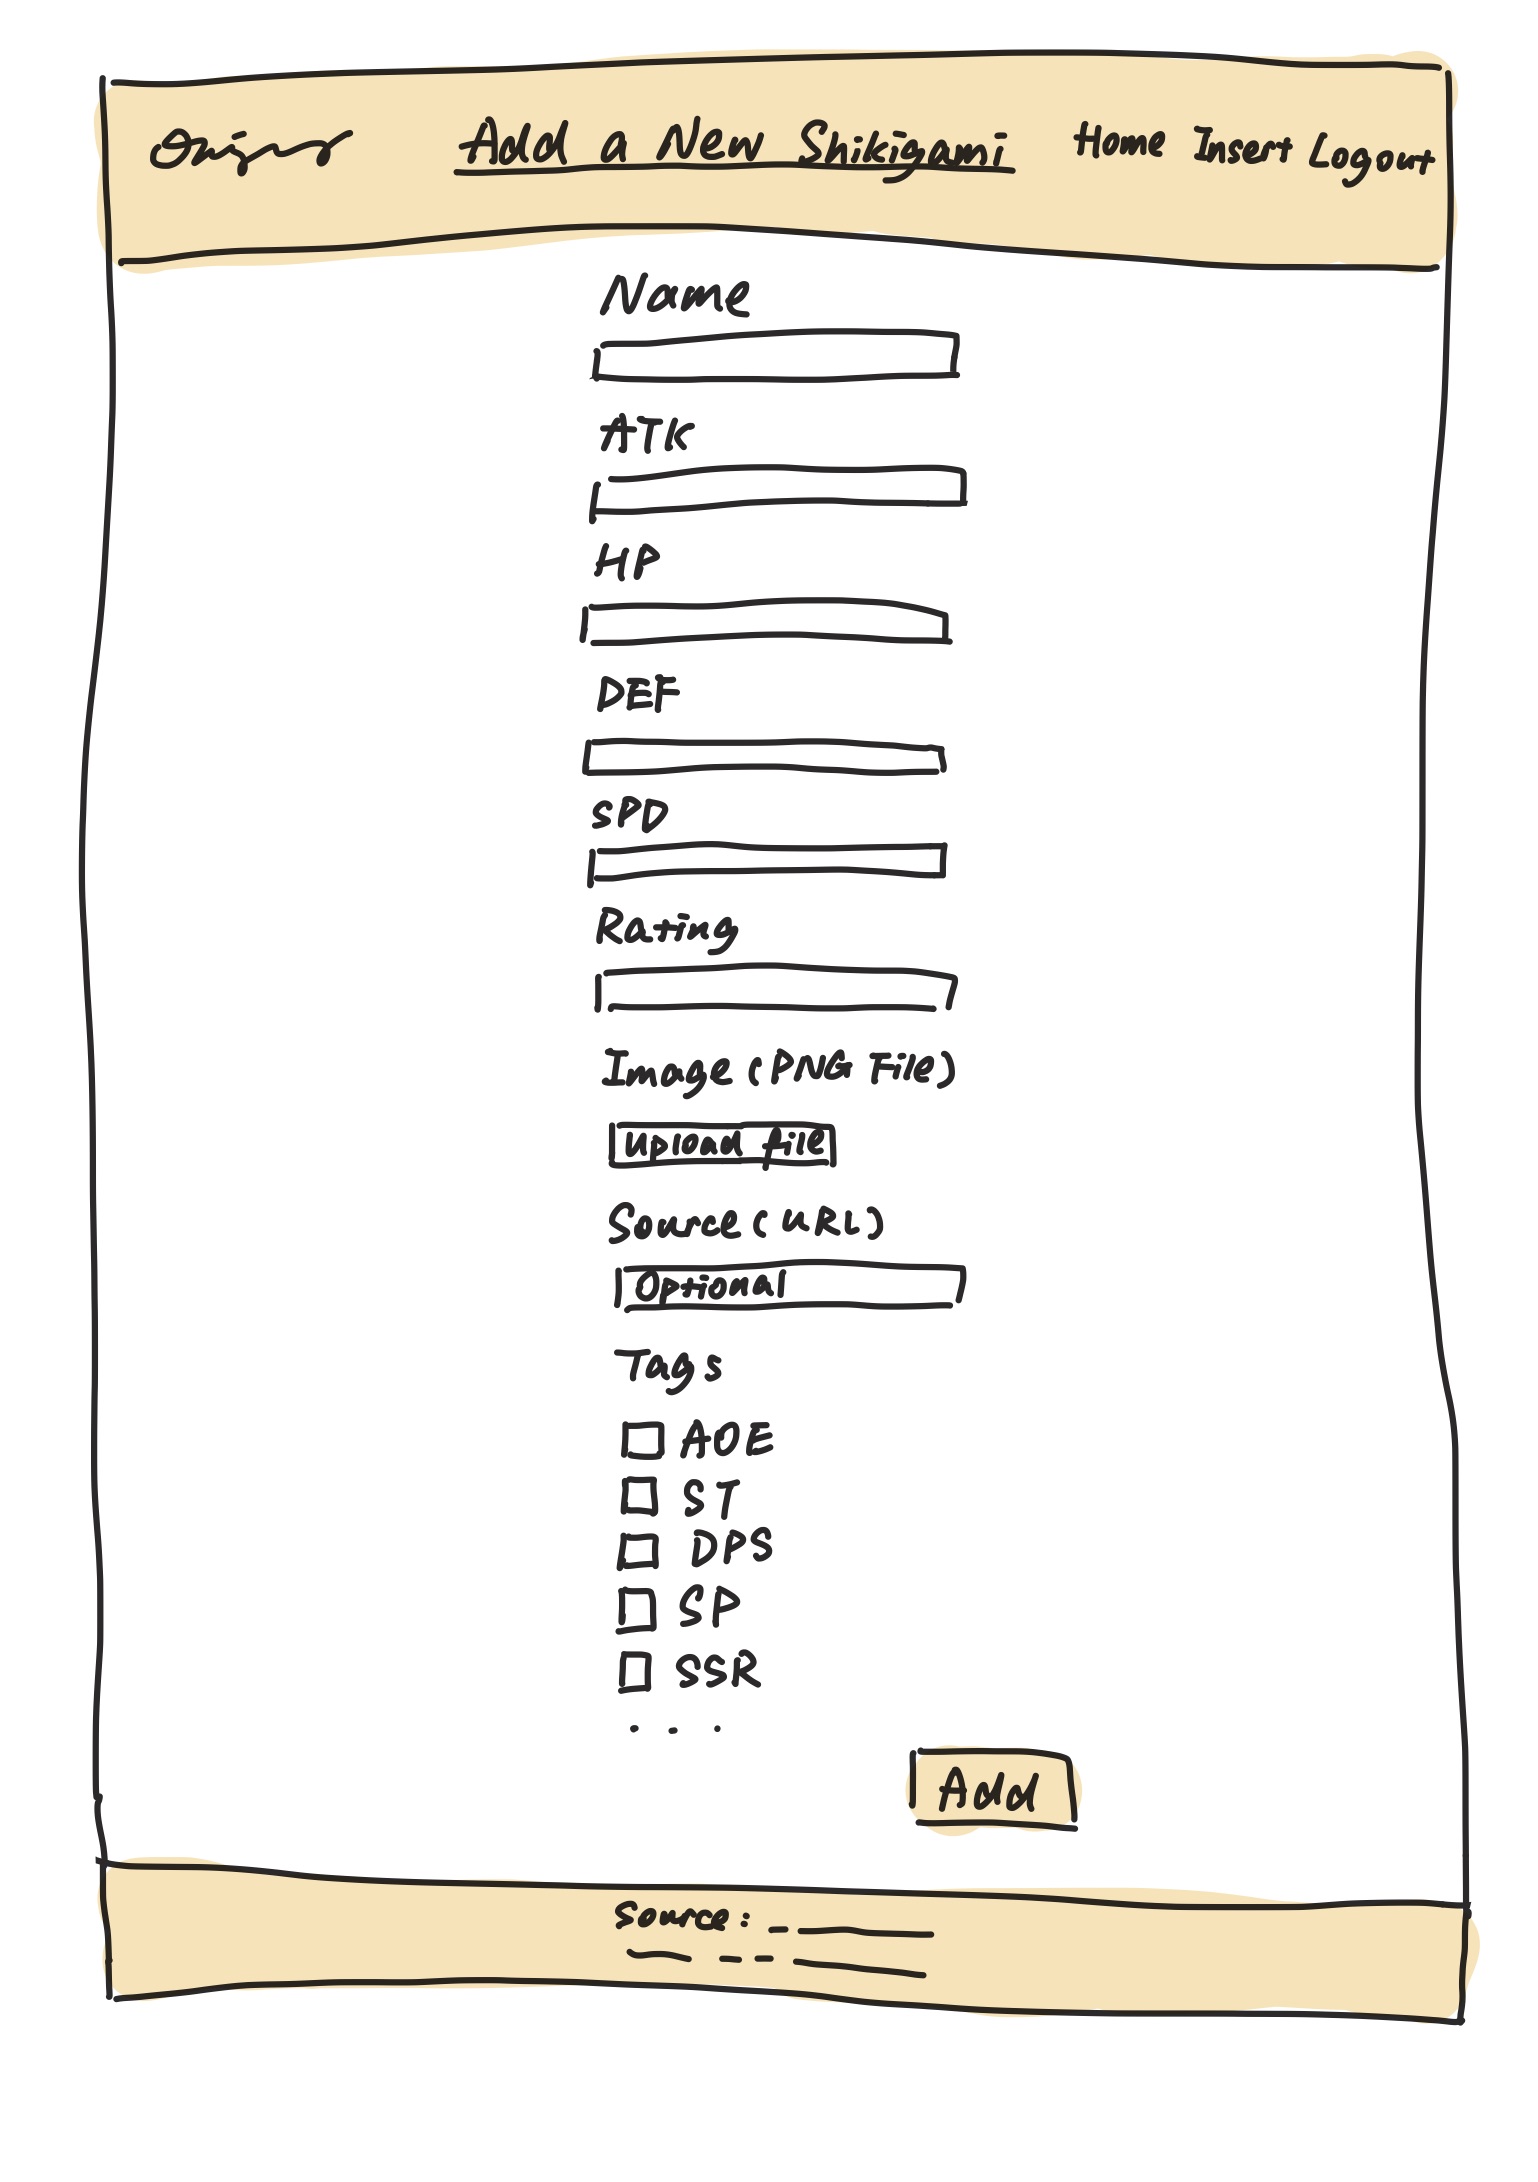 Add a New Shikigami Home Insert Logout
Name
ATK
HP
DEF
SPD
Rating
Image (PNG File)
Upload file
Source (URL)
Optional
Tags
AOE
ST
DPS
SP
SSR
. . .
Add
Source: